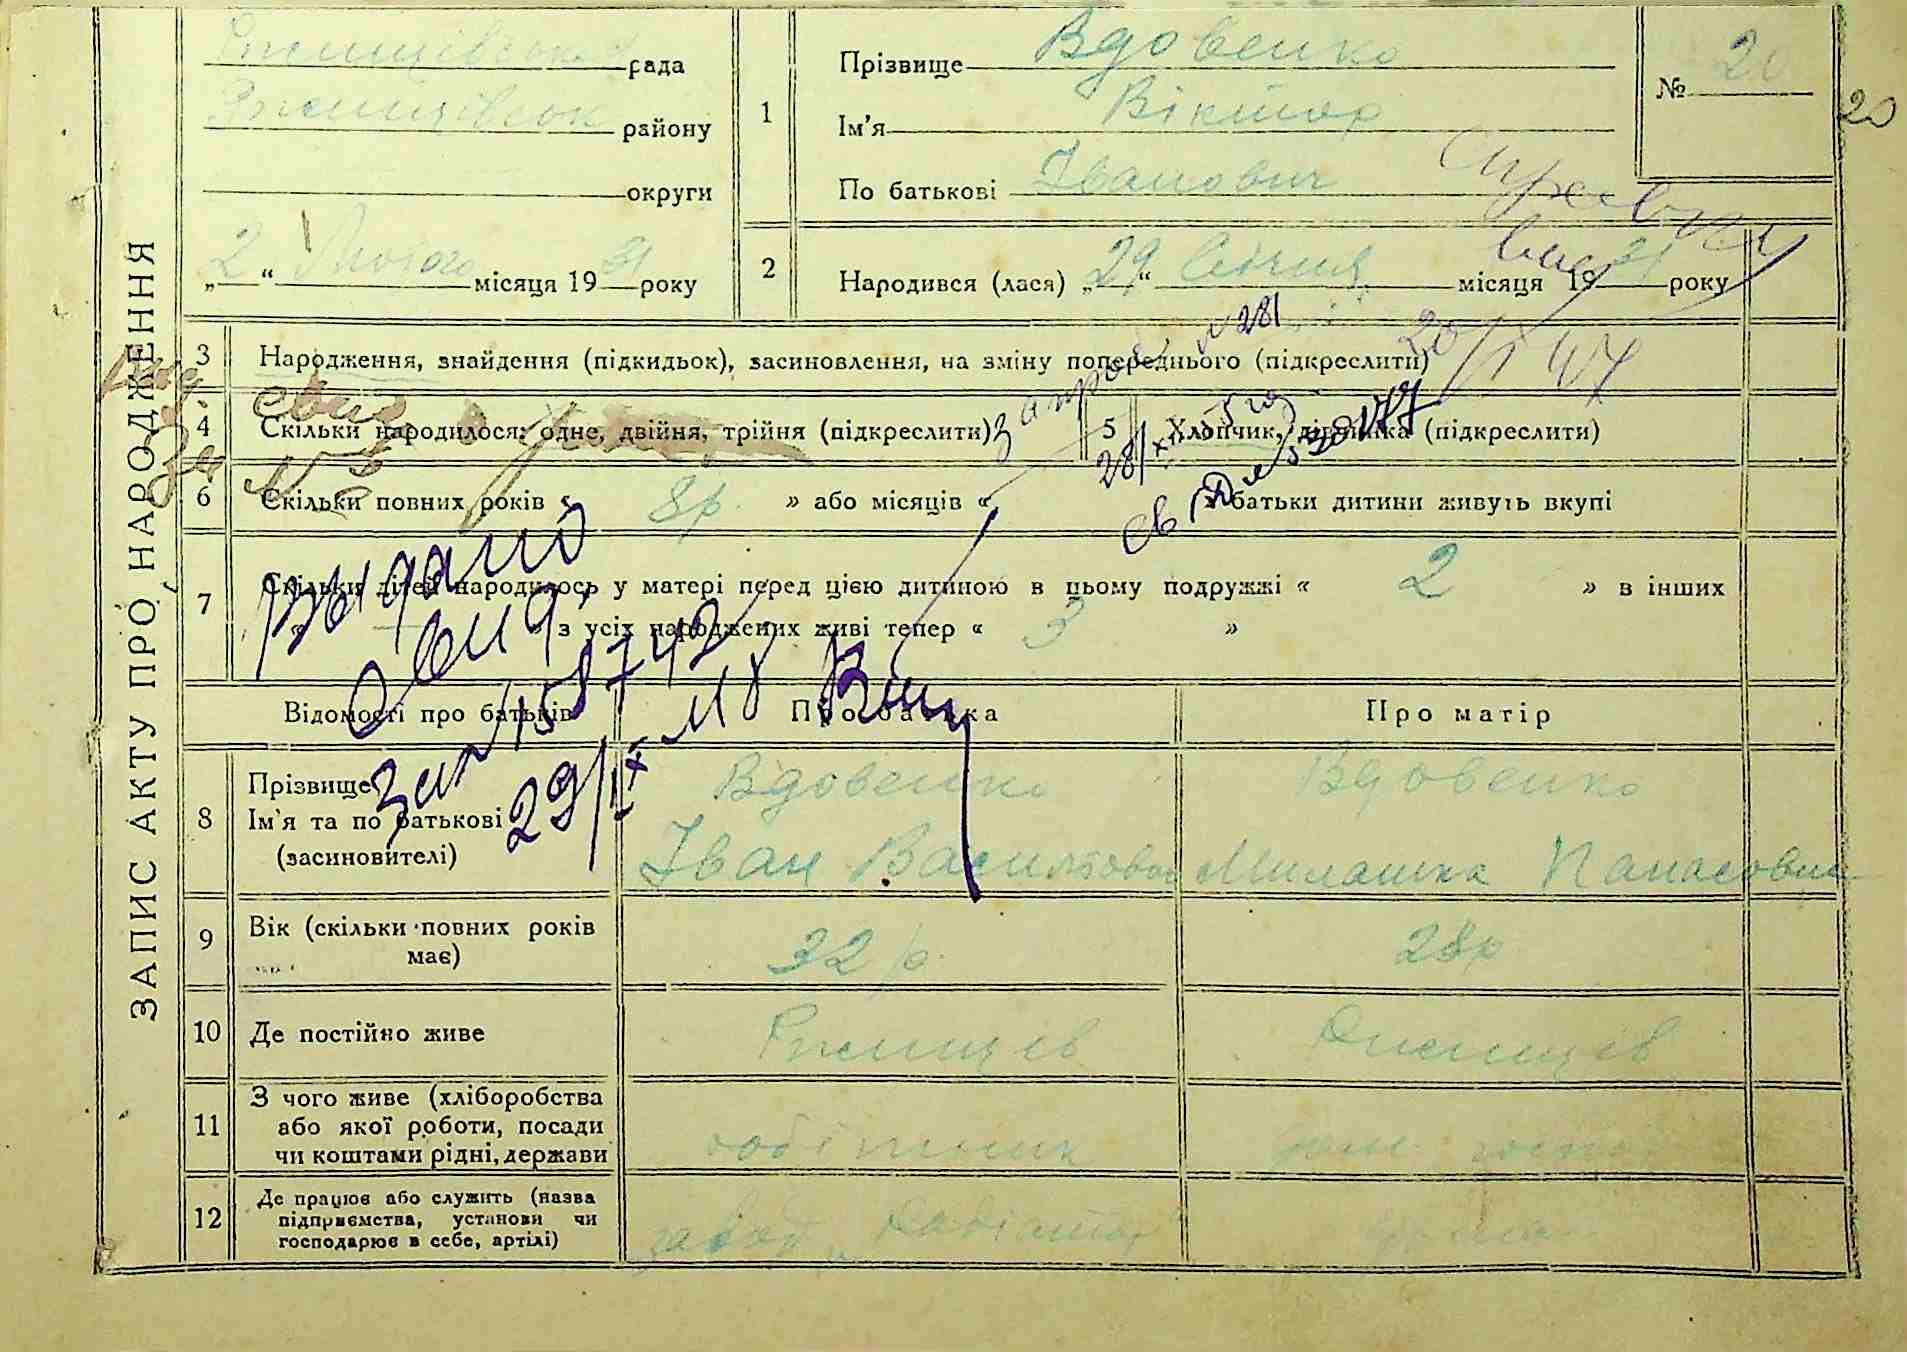 ЗАПИС АКТУ ПРО НАРОДЖЕННЯ
Ржищівська рада
Ржищівськ району
округи
„2“ Лютого місяця 1931 року
1
Прізвище Вдовенко
Ім'я Віктор
По батькові Іванович
№ 20
20
2
Народився (лася) „29“ Січня місяця 1931 року
3 Народження, знайдення (підкидьок), засиновлення, на зміну попереднього (підкреслити)
№ 281
4 Скільки народилося: одне, двійня, трійня (підкреслити)
5 Хлопчик, дівчинка (підкреслити)
6 Скільки повних років « 8р. » або місяців « » батьки дитини живуть вкупі
7 Скільки дітей народилось у матері перед цією дитиною в цьому подружжі « 2 » в інших
« — » з усіх народжених живі тепер « 3 »
Видано
Відомості про батьків
Про батька
Про матір
8 Прізвище
Ім'я та по батькові
(засиновителі)
Вдовенко
Іван Васильович
Вдовенко
Милашка Панасовна
9 Вік (скільки повних років має)
32 р.
28р
10 Де постійно живе
Ржищев
Ржищев
11 З чого живе (хліборобства або якої роботи, посади чи коштами рідні, держави
робітник
дом. госпо
12 Де працює або служить (назва підприємства, установи чи господарює в себе, артілі)
завод „Радіатор"